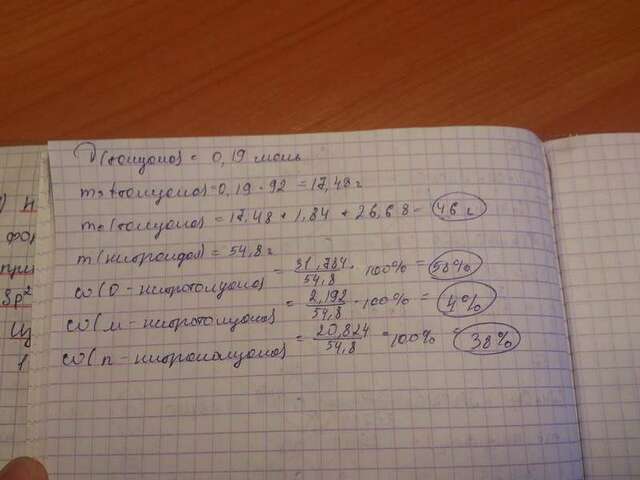 ν(толуола) = 0,19 моль
m₃(толуола) = 0,19 · 92 = 17,48 г
m₀(толуола) = 17,48 + 1,84 + 26,68 = 46 г
m(нитросоед) = 54,8 г
ω(о-нитротолуола) = 31,784/54,8 · 100% = 58%
ω(м-нитротолуола) = 2,192/54,8 · 100% = 4%
ω(п-нитротолуола) = 20,824/54,8 = 100% = 38%
) Н
фор
при
Sp²
Щ
1